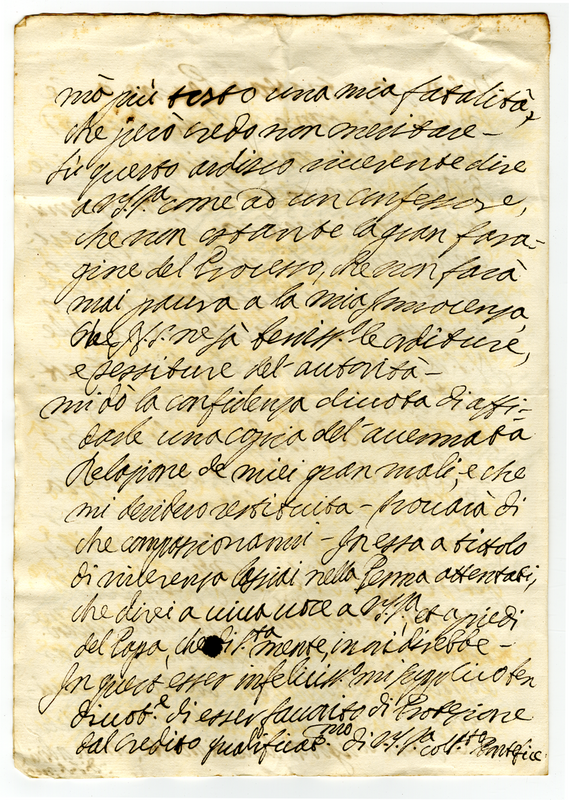 mò più tosto una mia fatalità,
che però credo non meritare -
Sù questo ardisco riverente dire
a V.S.Ill.ma come ad un Confessore,
che non ostante la gran fara-
gine del Processo, che non farà
mai paura a la mia Innocenza
che V.S. ne sà beniss.o le orditure,
e tessiture del'autorità -
mi dò la confidenza divota di affi-
darle una copia del'
Relazione de miei gran mali, e che
mi desidero restituita - trovarà di
che compassionarmi - In essa a titolo
di riverenza lasciai nella Penna attentati,
che direi a viva voce a V.S.Ill.ma, et a piedi
del Papa, che
In quest'esser infeliciss.mo mi
divot.e di esser favorito di Protezione
dal credito qualificat.mo di V.S.Ill.ma